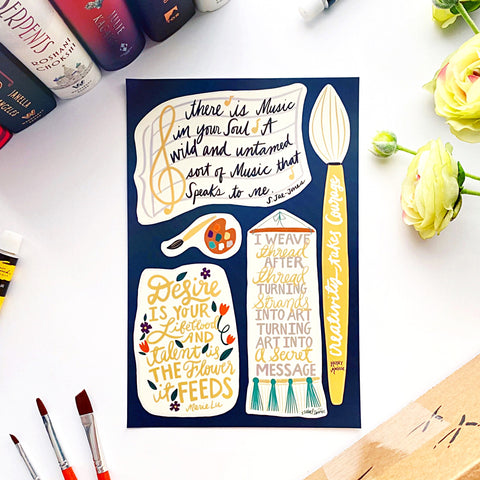 SERPENTS
ROSHANI
CHOKSHI
JANELLA
ANGELES
there is Music
in your Soul. A
wild and untamed
sort of Music that
Speaks to me.
S. Jae-Jones
Creativity takes Courage
I WEAVE
thread
AFTER
thread
TURNING
Strands
INTO ART
TURNING
ART INTO
A Secret
MESSAGE
Desire
IS YOUR
Lifeblood
AND
talent is
THE Flower
it FEEDS
Marie Lu